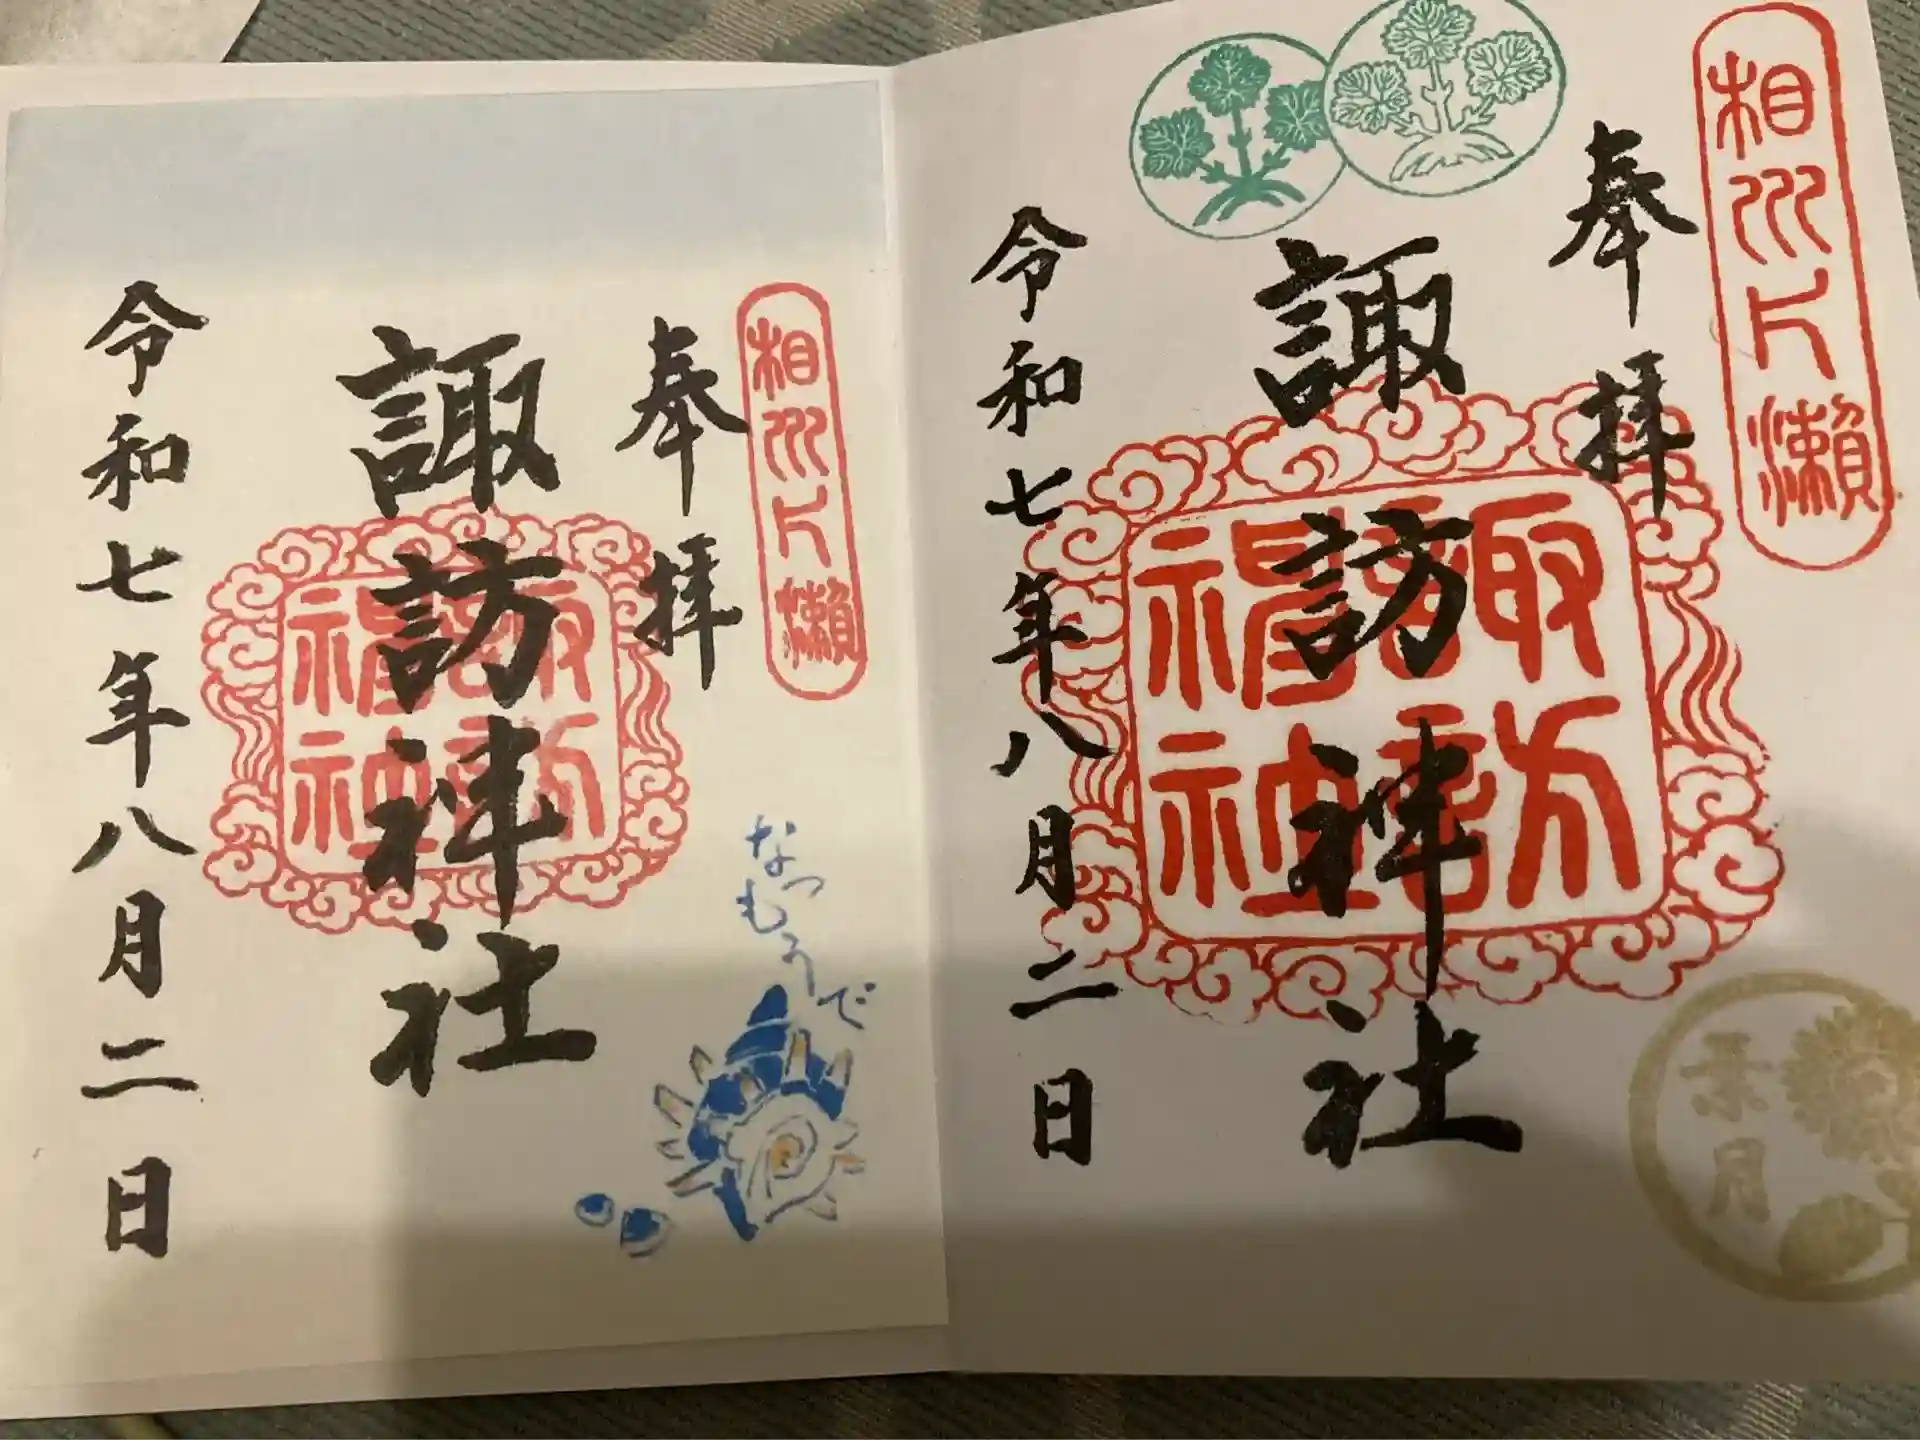 相州片瀬
奉拝
諏訪神社
諏訪
神社
令和七年八月二日
葉月
相州片瀬
奉拝
諏訪神社
諏訪
神社
令和七年八月二日
なつ
もうで